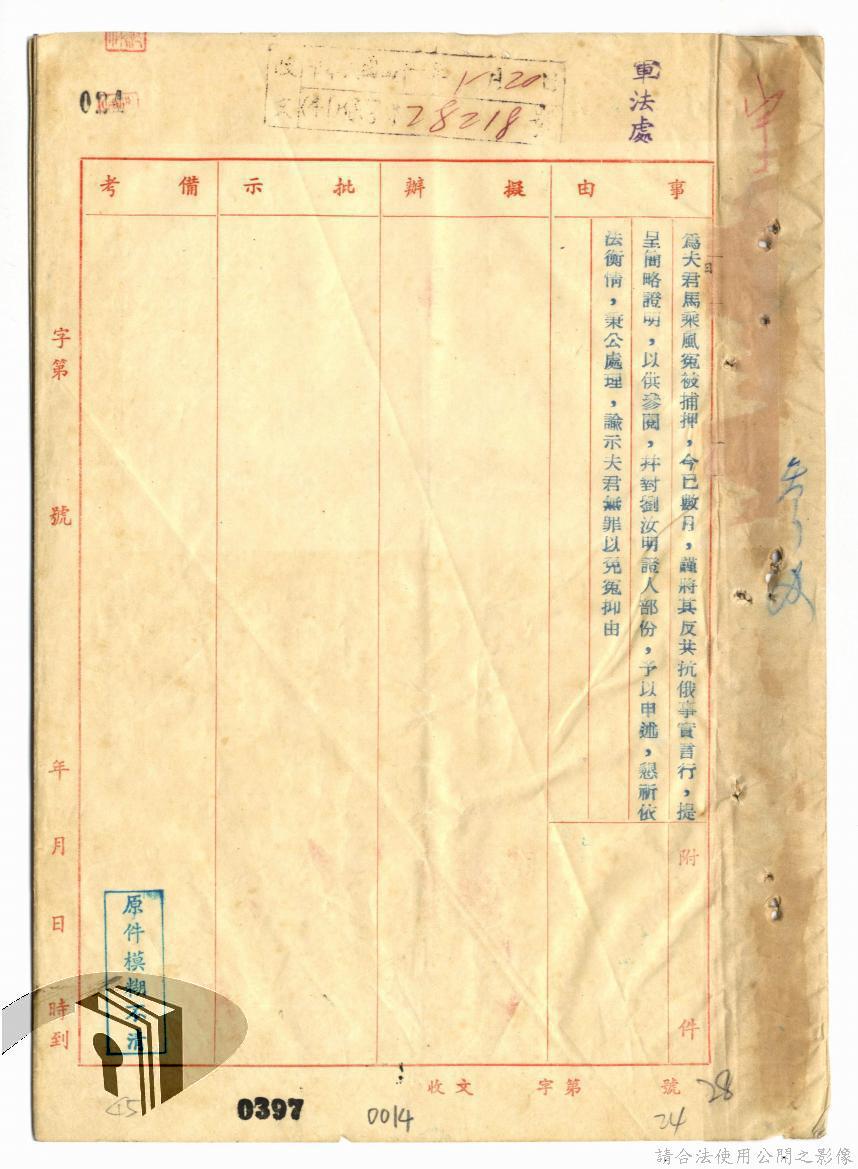 軍法處
28218
事由
擬辦
批示
備考
為夫君馬乘風冤被捕押，今已數月，謹將其反共抗俄事實言行，提
呈簡略證明，以供參閱，并對劉汝明證人部份，予以申述，懇祈依
法衡情，秉公處理，諭示夫君無罪以免冤抑由
附件
字第號
年月日時到
收文字第號
原件模糊不清
45
0397
0014
24
28
請合法使用公開之影像